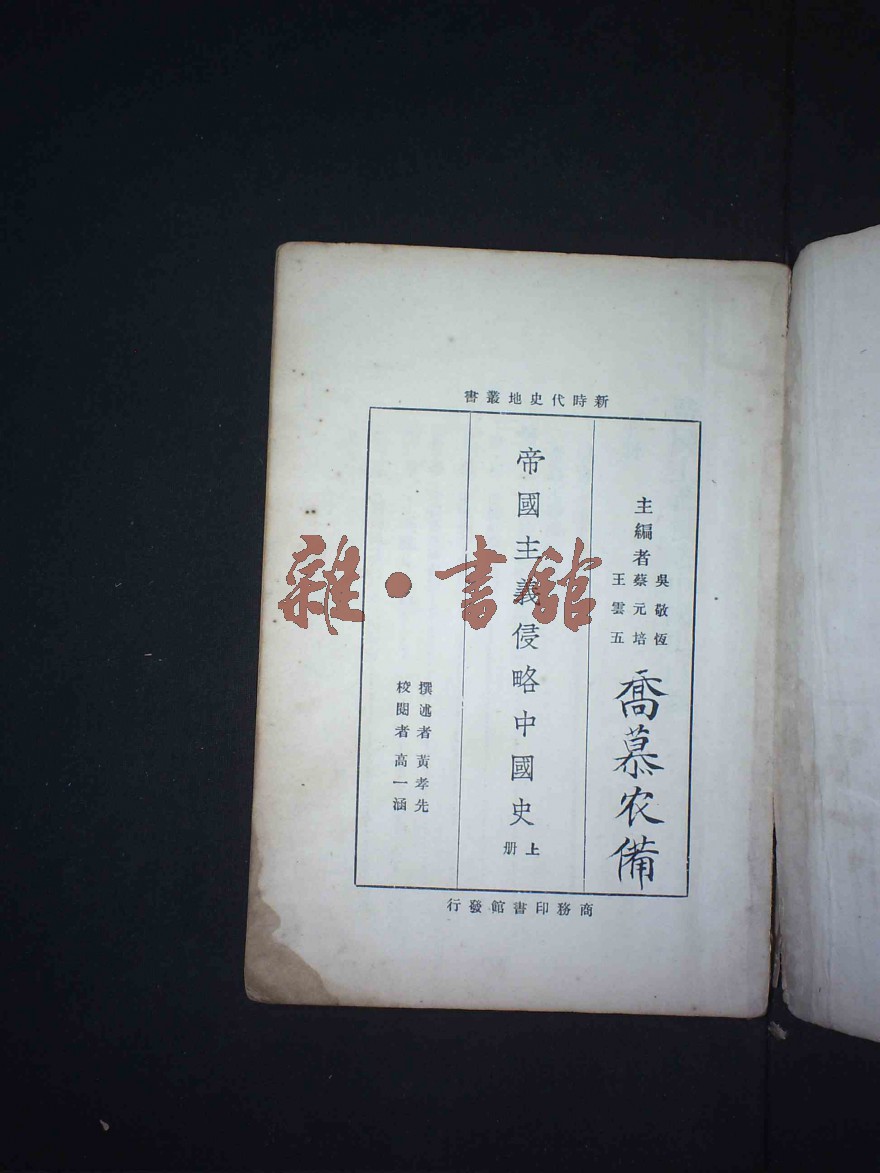 新時代史地叢書
主編者
吳敬恆
蔡元培
王雲五
喬慕农備
帝國主義侵略中國史
上册
撰述者 黃孝先
校閱者 高一涵
商務印書館發行
雜·書館